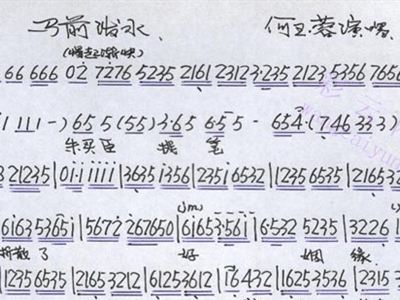 马前泼水 何玉蓉演唱
(慢起渐快)
66 666 02 7276 5235 2161 23123·235 2123 5356 7656
1 111 -) 65 5 (55) 3·65 6·5 5 - 654 (746 333)
朱买臣 提 笔
3 21235|01·1 1111|3635 1356|2351 6532|1235 6535|2165 32
6163 53651|5672 267650|6165 3·561|6·532 5235|3226 1
拆散了 好 姻 缘
1235 6535|2165 3212|6125 3612|76432|1625 3536|2315